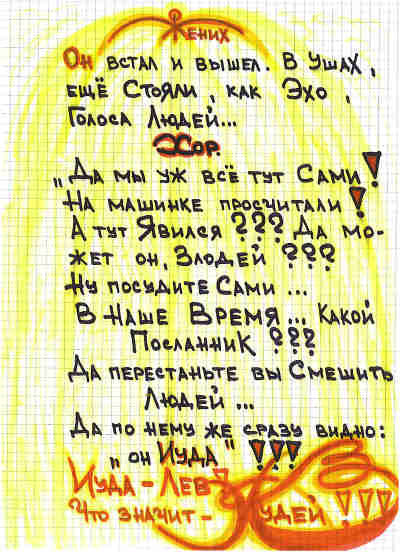 Жених
Он встал и вышел. В Ушах,
ещё Стояли, как Эхо,
Голоса Людей...
Хор.
„Да мы уж всё тут Сами!
На машинке просчитали!
А тут Явился ??? Да мо-
жет он, Злодей ???
Ну посудите Сами ...
В Наше Время ... Какой
Посланник ???
Да перестаньте вы Смешить
Людей ...
Да по нему же сразу видно:
„он Иуда" !!!
Иуда - Лев?
Что значит - Иудей !!!